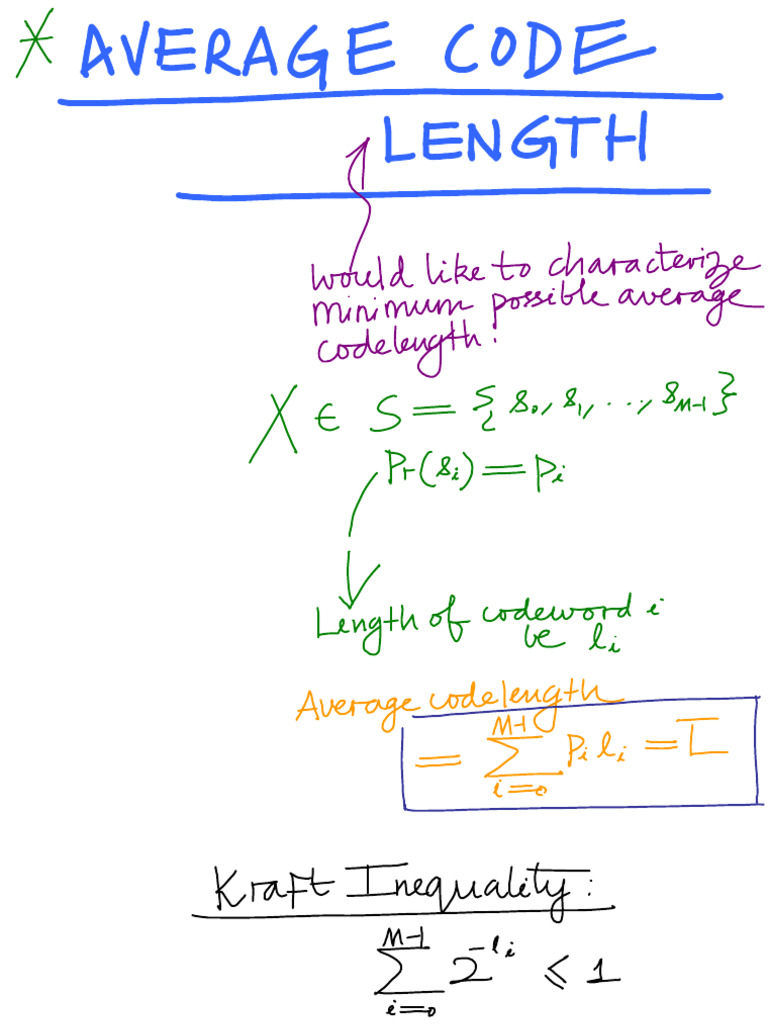 * AVERAGE CODE
LENGTH
would like to characterize
minimum possible average
codelength!
X ∈ S = {s₀, s₁, ..., s_{M-1}}
Pr(sᵢ) = pᵢ
Length of codeword i
be lᵢ
Average codelength
= \sum_{i=0}^{M-1} pᵢ lᵢ = \overline{L}
Kraft Inequality:
\sum_{i=0}^{M-1} 2^{-lᵢ} ≤ 1